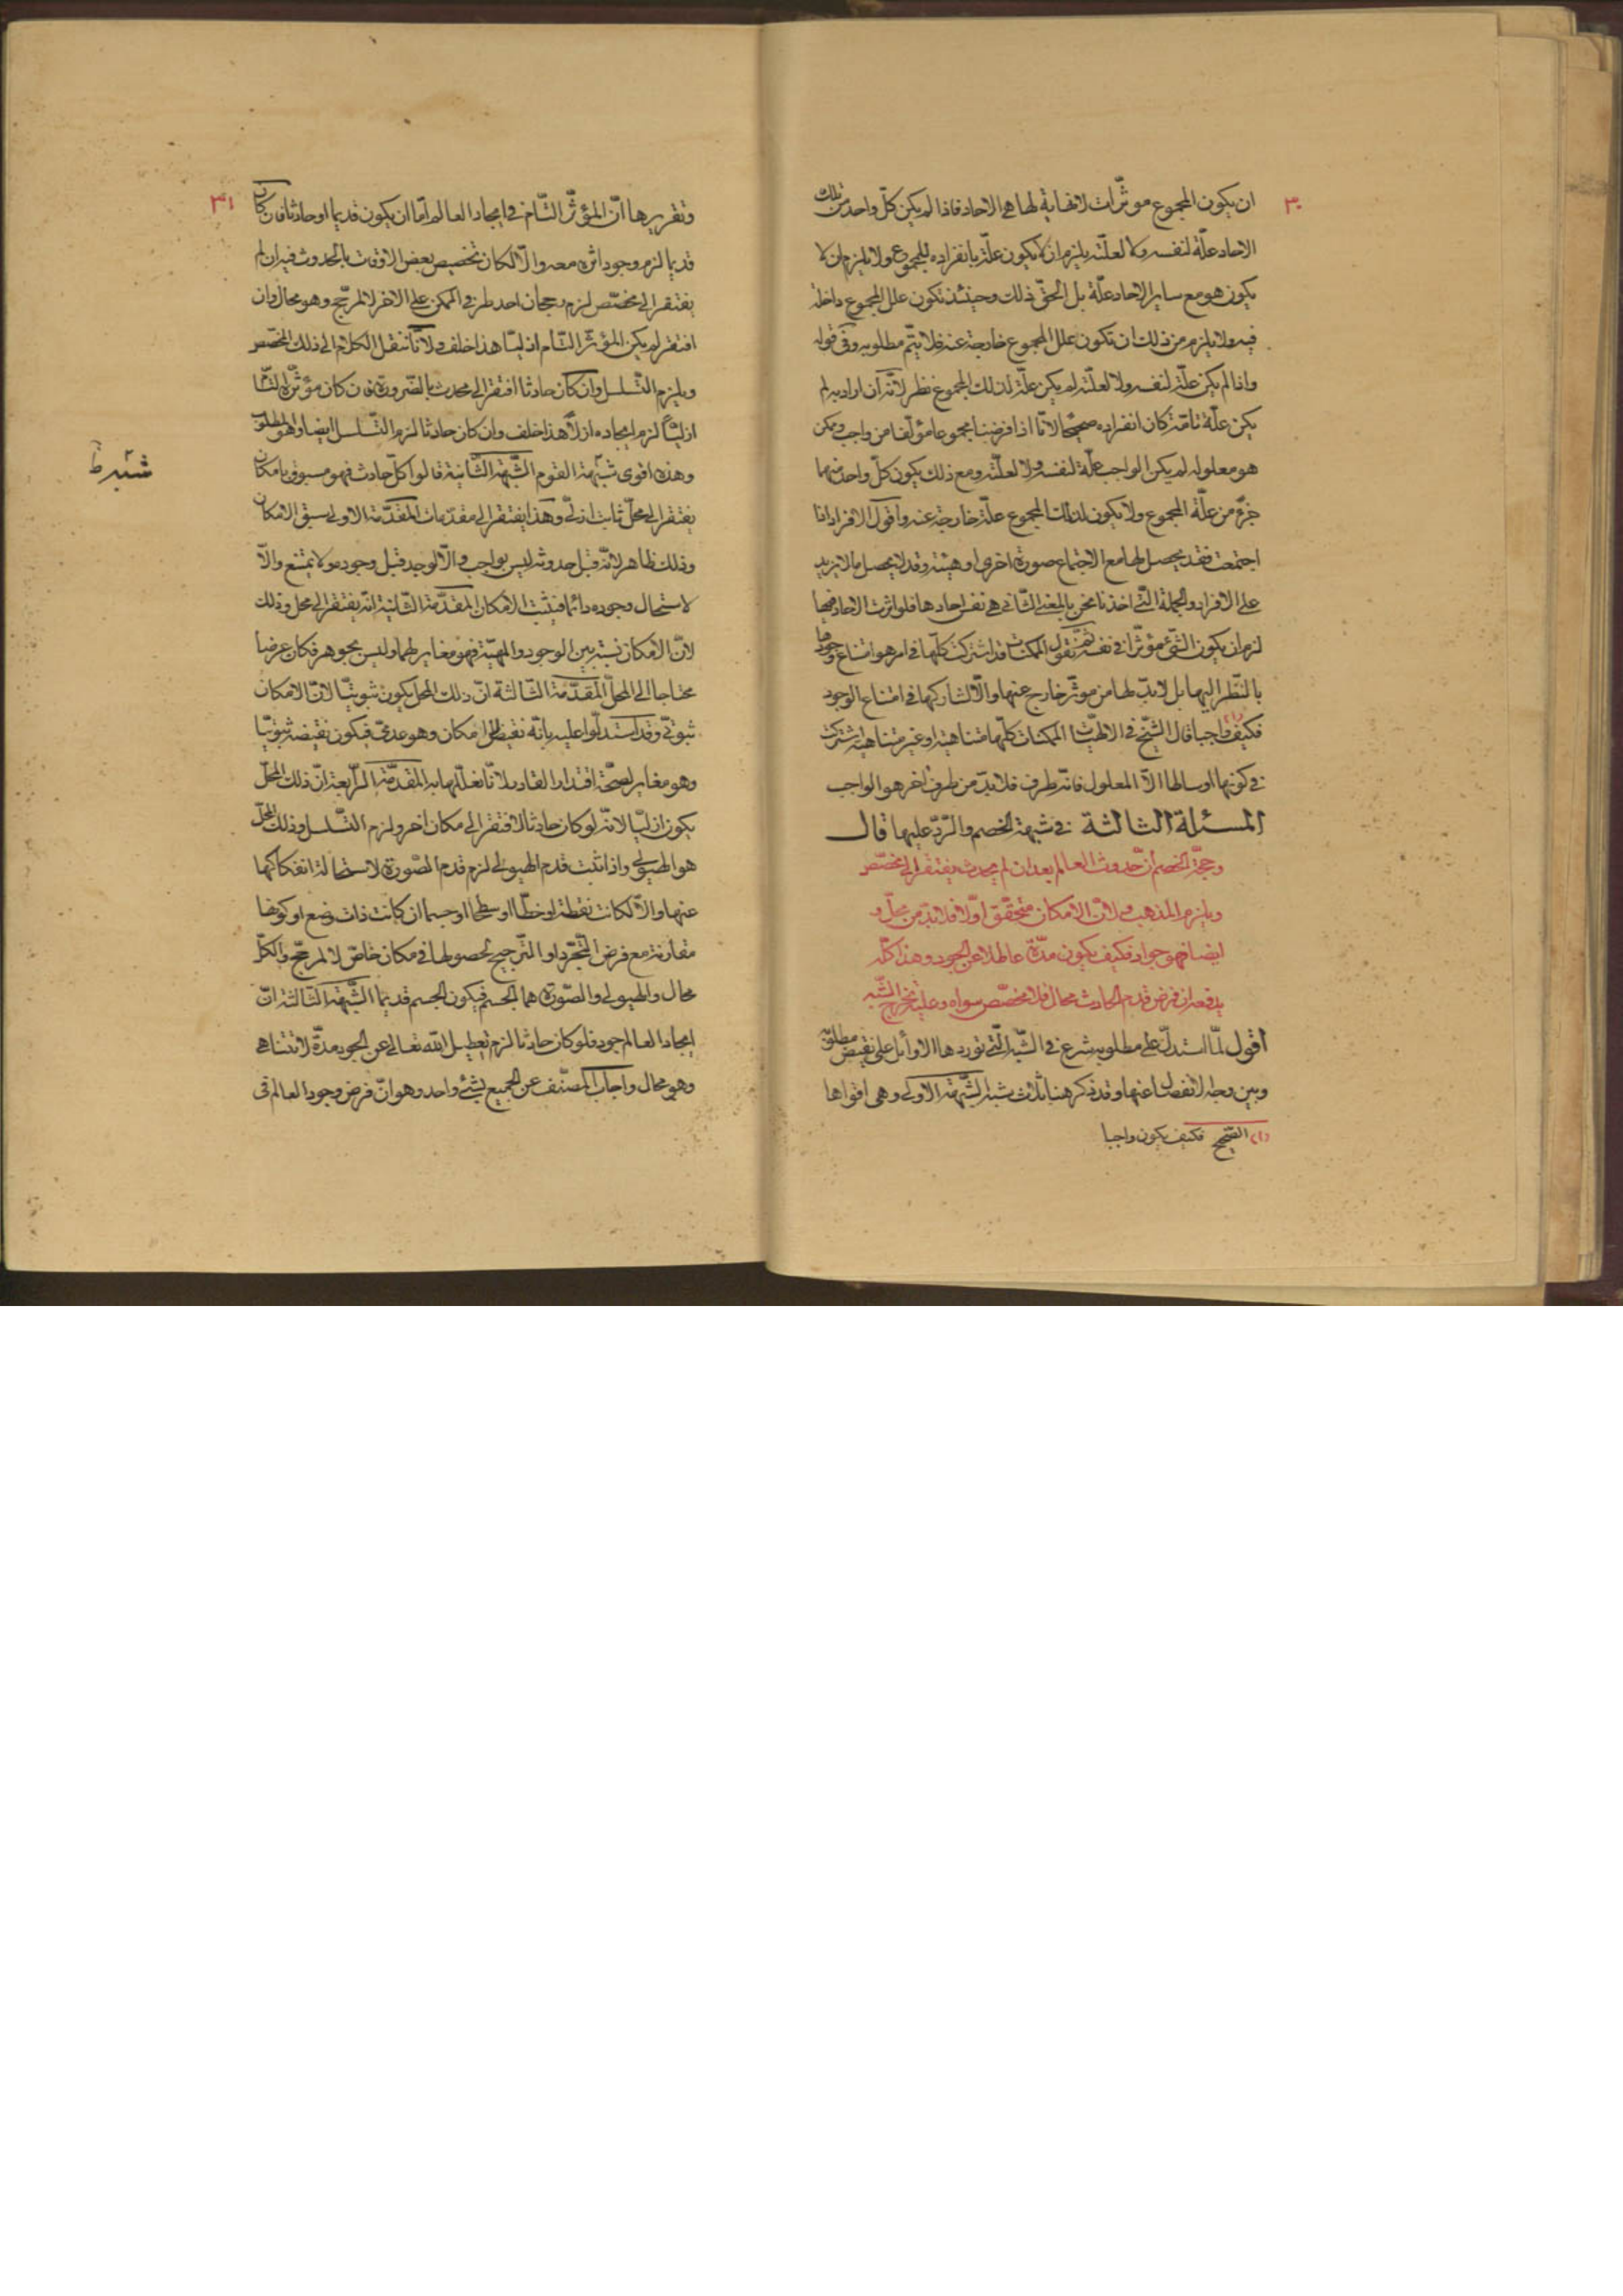 ٣٠
ان يكون المجموع موثّرات لانهاية لها هى الاحاد فاذا لم يكن كلّ واحد من تلك
الاحاد علّة لنفسه ولا لعلّته يلزم ان لا يكون علّة بانفراده للمجموع ولا يلزم ان لا
يكون هو مع ساير الاحاد علّة بل الحقّ ذلك وحينئذ تكون علل المجموع داخلة
فيه ولا يلزم من ذلك ان تكون علل المجموع خارجة عنه فلا يتمّ مطلوبه وفى قوله
واذا لم يكن علّة لنفسه ولا لعلّته لم يكن علّة لذلك المجموع نظر لانّه ان اراد به لم
يكن علّة تامّة كان انفراده صحيحًا لانّا اذا فرضنا مجموعا مؤلّفا من واجب وممكن
هو معلوله لم يكن الواجب علّة لنفسه ولا لعلّته ومع ذلك يكون كلّ واحد منهما
جزءٌ من علّة المجموع ولا يكون لذلك المجموع علّة خارجة عنه واقول الافراد اذا
اجتمعت فقد يحصل لها مع الاجتماع صورة اخرى او هيئة وقد لا يحصل ما لا يزيد
على الافراد والجملة الّتى اخذنا نحن بالمعنى الثّانى هى نفس احادها فلو اثرت الاحاد فيها
لزم ان يكون الشّئ مؤثّرا فى نفسه ثمّ نقول الممكنات قد اشتركت كلّها فى امر هو امتناع وجودها
بالنّظر اليها بل لابدّ لها من موثّر خارج عنها والّا لشاركها فى امتناع الوجود
فكيف واجبا (١) قال الشّيخ فى الالهيّات الممكنات كلّها متناهية او غير متناهية اشتركت
فى كونها اوساطا الّا المعلول فانّه طرف فلابدّ من طرف اخر هو الواجب
المسئلة الثالثة فى شبهة الخصم والرّدّ عليها قال
وحجّة الخصم انّ حدوث العالم بعد ان لم يحدث يفتقر الى مخصّص
ويلزم المذهب ولانّ الامكان متحقّق اوّلا فلابدّ من محلّ و
ايضا فهو جواد فكيف يكون مدّة عاطلا عن الجود وهذا كلّه
يدفعه ان فرض قدم الحادث محال فلا مخصّص سواه وعليه تخرج الشّبه
اقول لمّا استدلّ على مطلوبه شرع فى الشّبه الّتى توردها الاوائل على نقيض مطلوبه
وبيّن وجه الانفصال عنها وقد ذكر هنا ثلاث شبه الشّبهة الاولى وهى اقواها
(١) الصّحيح فكيف يكون واجبا
٣١
وتقريرها انّ المؤثّر التّام فى ايجاد العالم امّا ان يكون قديما او حادثا فان كان
قديما لزم وجود اثره معه والّا لكان تخصيص بعض الاوقات بالحدوث فيه ان لم
يفتقر الى مخصّص لزم رجحان احد طرفى الممكن على الاخر لا لمرجّح وهو محال وان
افتقر لم يكن المؤثّر التّام ازليّا هذا خلف ولانّا ننقل الكلام الى ذلك المخصّص
ويلزم التّسلسل وان كان حادثا افتقر الى محدث بالضّرورة فان كان مؤثّره التّام
ازليّاً لزم ايجاده ازلاً هذا خلف وان كان حادثا لزم التّسلسل ايضا وهو المطلوب
وهذه اقوى شبهة القوم الشّبهة الثّانية قالوا كلّ حادث فهو مسبوق بامكان
شبه ظ
يفتقر الى محلّ ثابت ازلىّ وهذا يفتقر الى مقدّمات المقدّمة الاولى سبق الامكان
وذلك ظاهر لانّه قبل حدوثه ليس بواجب والّا لوجد قبل وجوده ولا يمتنع والّا
لاستحال وجوده دائما فيثبت الامكان المقدّمة الثّانية انّه يفتقر الى محل وذلك
لانّ الامكان نسبة بين الوجود والمهيّة فهو مغاير لهما وليس بجوهر فكان عرضا
محتاجا الى المحلّ المقدّمة الثّالثة انّ ذلك المحل يكون ثبوتيّا لانّ الامكان
ثبوتىّ وقد استدلّوا عليه بانّه نقيض اللّا امكان وهو عدمىّ فيكون نقيضه ثبوتيّا
وهو مغاير لصحّة اقتدار القادر لانّا نعلّلها به المقدّمة الرّابعة انّ ذلك المحلّ
يكون ازليّا لانّه لو كان حادثا لافتقر الى مكان اخر ولزم التّسلسل وذلك المحلّ
هو الهيولى واذا ثبت قدم الهيولى لزم قدم الصّورة لاستحالة انفكاكها
عنها والّا لكانت نقطة او خطّا او سطحا او جسما ان كانت ذات وضع او كونها
مقارنة مع فرض التّجرّد او التّرجيح لحصولها فى مكان خاصّ لا لمرجّح والكلّ
محال والهيولى والصّورة هما الجسم فيكون الجسم قديما الشّبهة الثّالثة انّ
ايجاد العالم جود فلو كان حادثا لزم تعطيل اللّه تعالى عن الجود مدّة لا تتناهى
وهو محال واجاب المصنّف عن الجميع بشئ واحد وهو انّ فرض وجود العالم فى